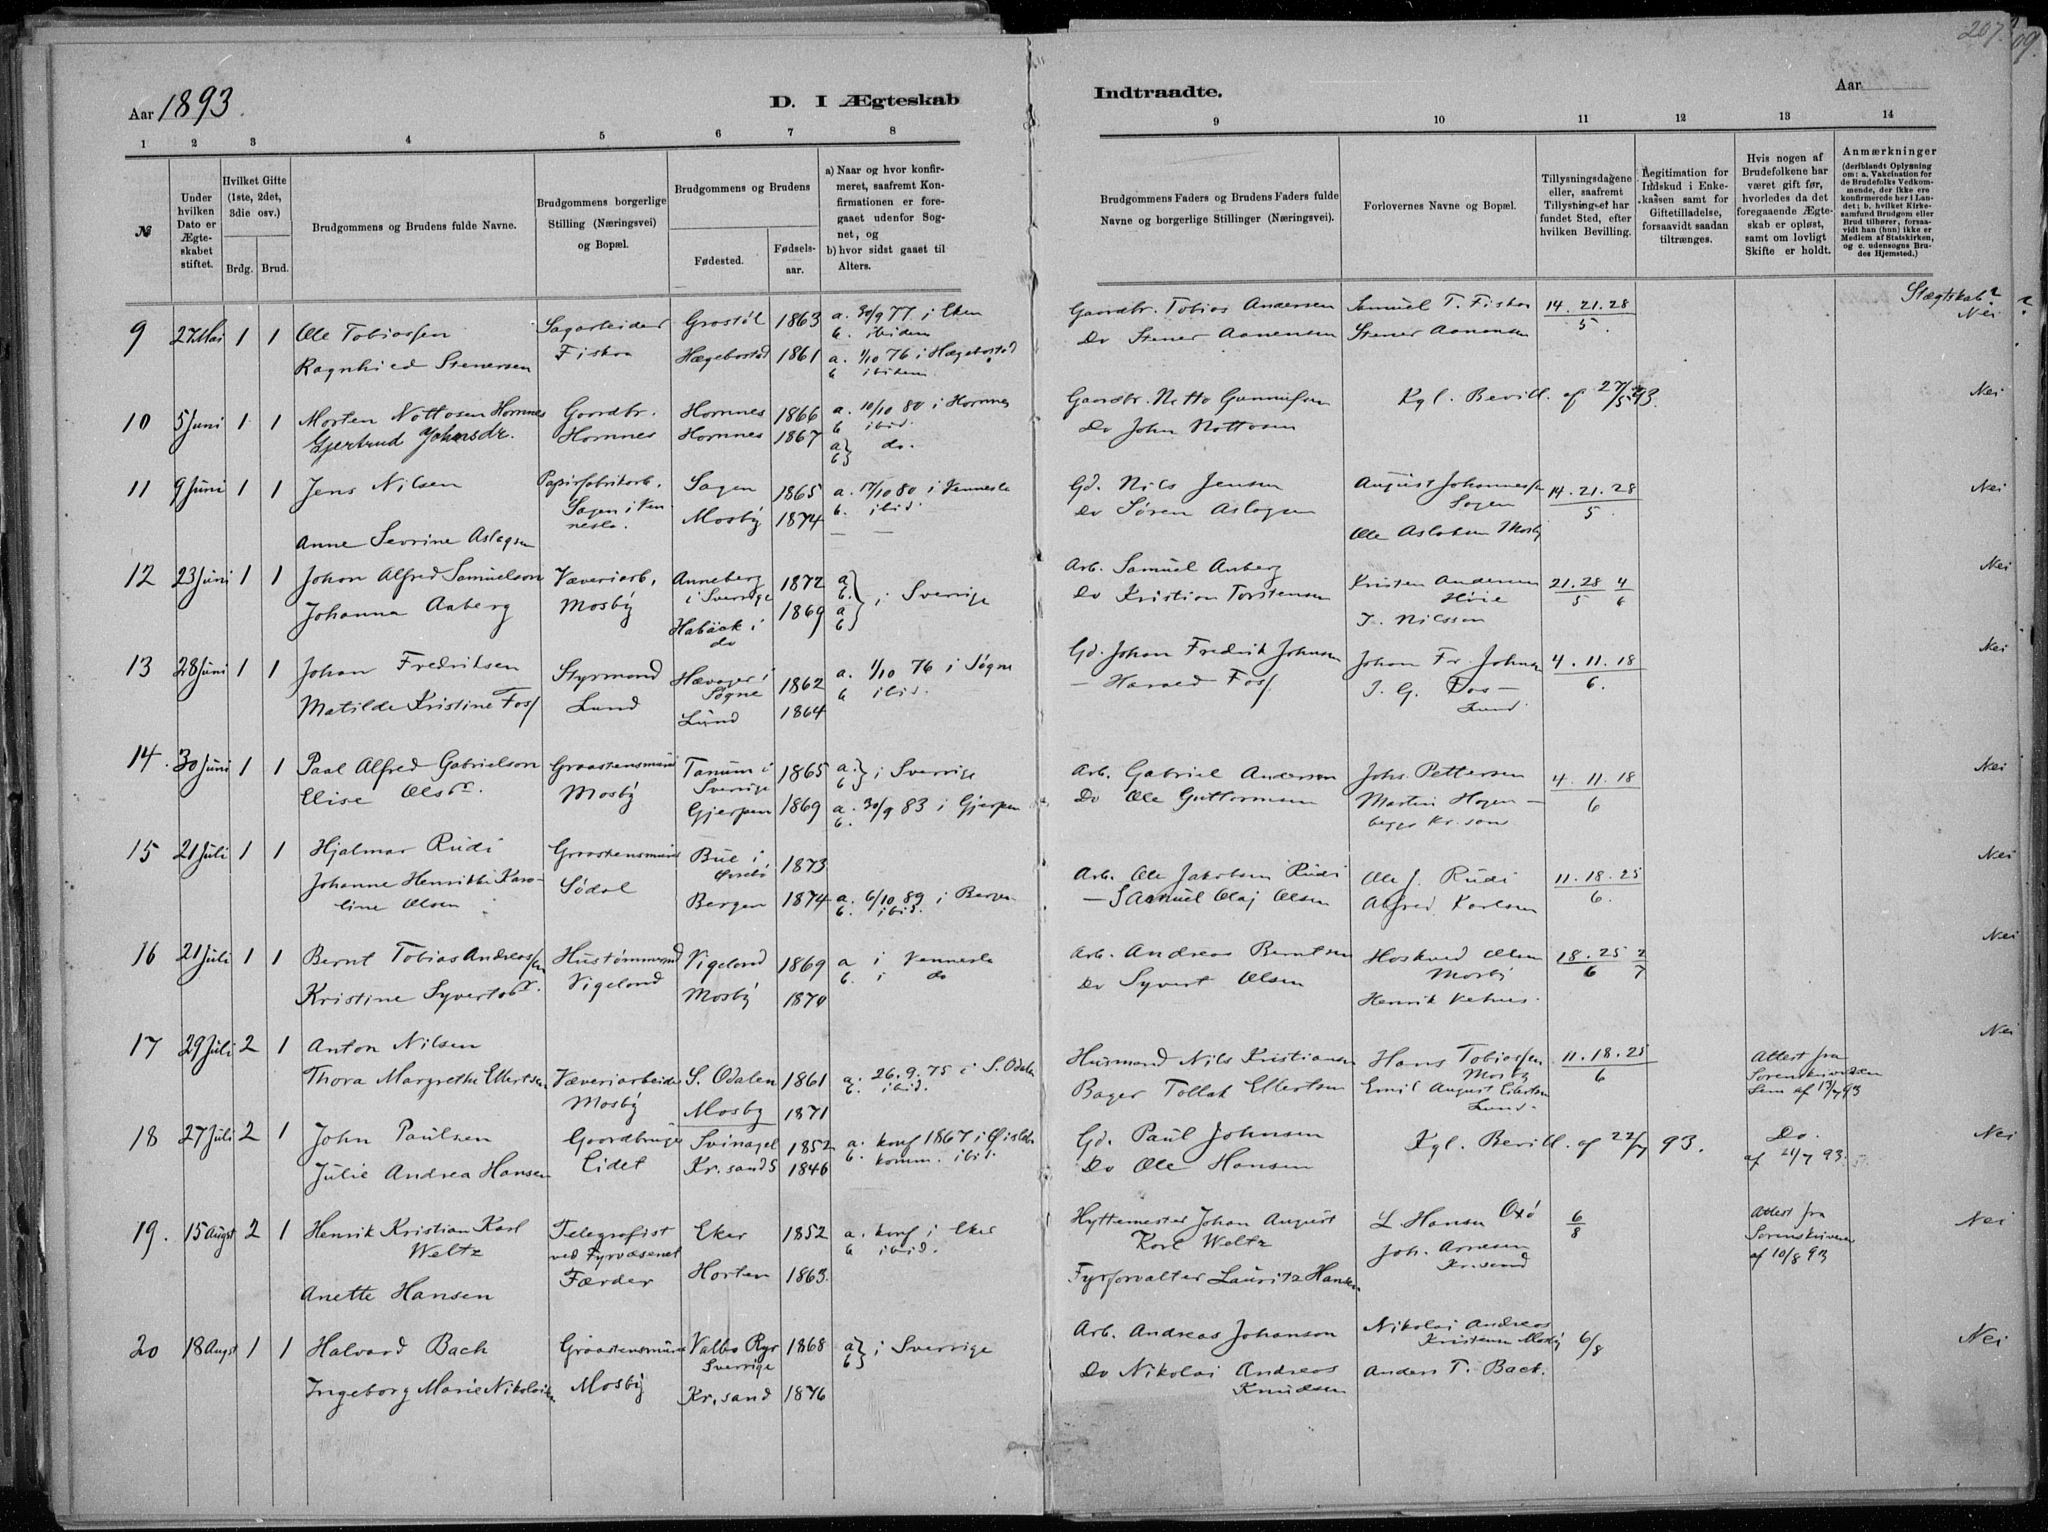 207.
09.
Aar 1893.
D. I Ægteskab
Indtraadte.
Aar
1 2 3 4 5 6 7 8
9 10 11 12 13 14
№
Under hvilken Dato er Ægteskabet stiftet.
Hvilket Gifte (1ste, 2det, 3die osv.)
Brdg. Brud.
Brudgommens og Brudens fulde Navne.
Brudgommens borgerlige Stilling (Næringsvei) og Bopæl.
Brudgommens og Brudens
Fødested. Fødselsaar.
a) Naar og hvor konfirmeret, saafremt Konfirmationen er foregaaet udenfor Sognet, og
b) hvor sidst gaaet til Alters.
Brudgommens Faders og Brudens Faders fulde Navne og borgerlige Stillinger (Næringsvei).
Forlovernes Navne og Bopæl.
Tillysningsdagene eller, saafremt Tillysning ei har fundet Sted, efter hvilken Bevilling.
Legitimation for Indskud i Enkekassen samt for Giftetilladelse, forsaavidt saadan tiltrænges.
Hvis nogen af Brudefolkene har været gift før, hvorledes da det foregaaende Ægteskab er opløst, samt om lovligt Skifte er holdt.
Anmærkninger (deriblandt Oplysning om: a. Vakcination for de Brudefolks Vedkommende, der ikke ere konfirmerede her i Landet; b. hvilket Kirkesamfund Brudgom eller Brud tilhører, forsaavidt han (hun) ikke er Medlem af Statskirken, og c. udensogns Brudes Hjemsted.)
Slægtskab?
9 27 Mai 1 1 Ole Tobiassen Sagarbeider 1863 a. 30/9 77 i Eken
b. ibidem
Gaardbr. Tobias Andersen Samuel T. Fiskaa 14. 21. 28 Nei
5.
Ragnhild Stenersen Fiskaa Hægebostad 1861 a. 1/10 76 i Hægebostad
b ibidem
Do Stener Aanensen Stener Aanensen
10 5 Juni 1 1 Morten Nottosen Hornnes Gaardbr. Hornnes 1866 a. 10/10 80 i Hornnes
b ibid.
Gaardbr. Notto Gunnufsen Kgl. Bevill. af 27/5 93. Nei
Gjertrud Johnsdr. Hornnes Hornnes 1867 a b} do.
Do John Nottosen
11 9 Juni 1 1 Jens Nilsen Papirfabrikarb. Sagen 1865 a. 17/10 80 i Vennesla
b. ibid.
Gd. Nils Jensen August Johannessen 14. 21. 28 Nei
Sagen 5
Sagen i Vennesla. Mosby 1874 —
Do Søren Aslagsen
Anne Sevrine Aslagsen Ole Aslaksen Mosby
12 23 Juni 1 1 Johan Alfred Samuelson Væveriarb. Anneberg i Sverrige 1872 a b. a b} i Sverrige
Arb. Samuel Anberg Kristen Andersen Høie 21. 28 4 Nei
5 6
Johanna Aaberg Mosby Habäck i do 1869
Do Kristian Torstensen J. Nilsson
13 28 Juni 1 1 Johan Fredriksen Styrmand Hævager i Søgne 1862 a. 1/10 76 i Søgne
b ibid.
Gd. Johan Fredrik Johnsen Johan Fr. Johnsen 4. 11. 18 Nei
6.
Matilde Kristine Foss Lund Lund 1864
— Harald Foss J. G. Fos — Lund
14. 30 Juni 1 1 Paal Alfred Gabrielson Graastensmurer Tanum i Sverrige 1865 a. b} i Sverrige
Arb. Gabriel Anderson Johs. Pettersen 4. 11. 18 Nei
6
Elise Olsdr. Mosby Gjerpen 1869 a. 30/9 83 i Gjerpen
b.
Do Ole Guttormsen Martin Hagen
15 21 Juli 1 1 Hjalmar Rudi Graastensmurer Bue i Øvrebø 1873
Arb. Ole Jakobsen Rudi Ole J. Rudi 11. 18. 25 Nei
6.
Johanne Henrikke Karoline Olsen Sødal Bergen 1874 a. 6/10 89 i Bergen
b. ibid.
— Samuel Olaj Olsen Alfred Karlsen
16 21 Juli 1 1 Bernt Tobias Andreassen Hustømmermand Vigeland 1869 a i Vennesla
b. i do
Arb. Andreas Berntsen Olsen Mosby 18. 25 2 Nei
6 7
Kristine Syvertsdr. Vigeland Mosby 1870
Do Syvert Olsen Henrik
17 29 Juli 2 1 Anton Nilsen Væveriarbeider S. Odalen 1861 a. 26. 9. 75 i S. Odalen
b. ibid.
Husmand Nils Kristiansen Hans Tobiassen Mosby 11. 18. 25 Attest fra Sorenskriveren Sem af 13/7 93 Nei
6
Thora Margrethe Ellertsen Mosby Mosby 1871
Bager Tollak Ellertsen Emil August Ellertsen Lund.
18 27 Juli 2 1 John Paulsen Gaardbruger Svinagel 1852 a. konf 1867 i Øislebø
b. komm. ibid.
Gd. Paul Johnsen Kgl. Bevill. af 22/7 93. Do. af 21/7 93. Nei
Julie Andrea Hansen Eidet Kr.sand S 1846
Do Ole Hansen
19. 15 Augst 2 1 Henrik Kristian Karl Weltz Telegrafist ved Fyrvæsenet Eker 1852 a. konf i Eker
b ibid.
Hyttemester Johan August Karl Weltz L Hansen Oxø 6/8 Attest fra Sorenskriveren af 10/8 93 Nei
Anette Hansen Færder Horten 1863.
Fyrforvalter Lauritz Hansen Joh. Arnesen Kr.sand
20 18 Augst 1 1 Halvard Back Graastensmurer Valbo Ryr Sverrige 1868 a b} i Sverrige
Arb. Andreas Johanson Nikolai Andreas Knudsen Mosby 6/8 Nei
Ingeborg Marie Nikolaisen Mosby Kr.sand 1876
Do Nikolai Andreas Knudsen Anders T. Back.